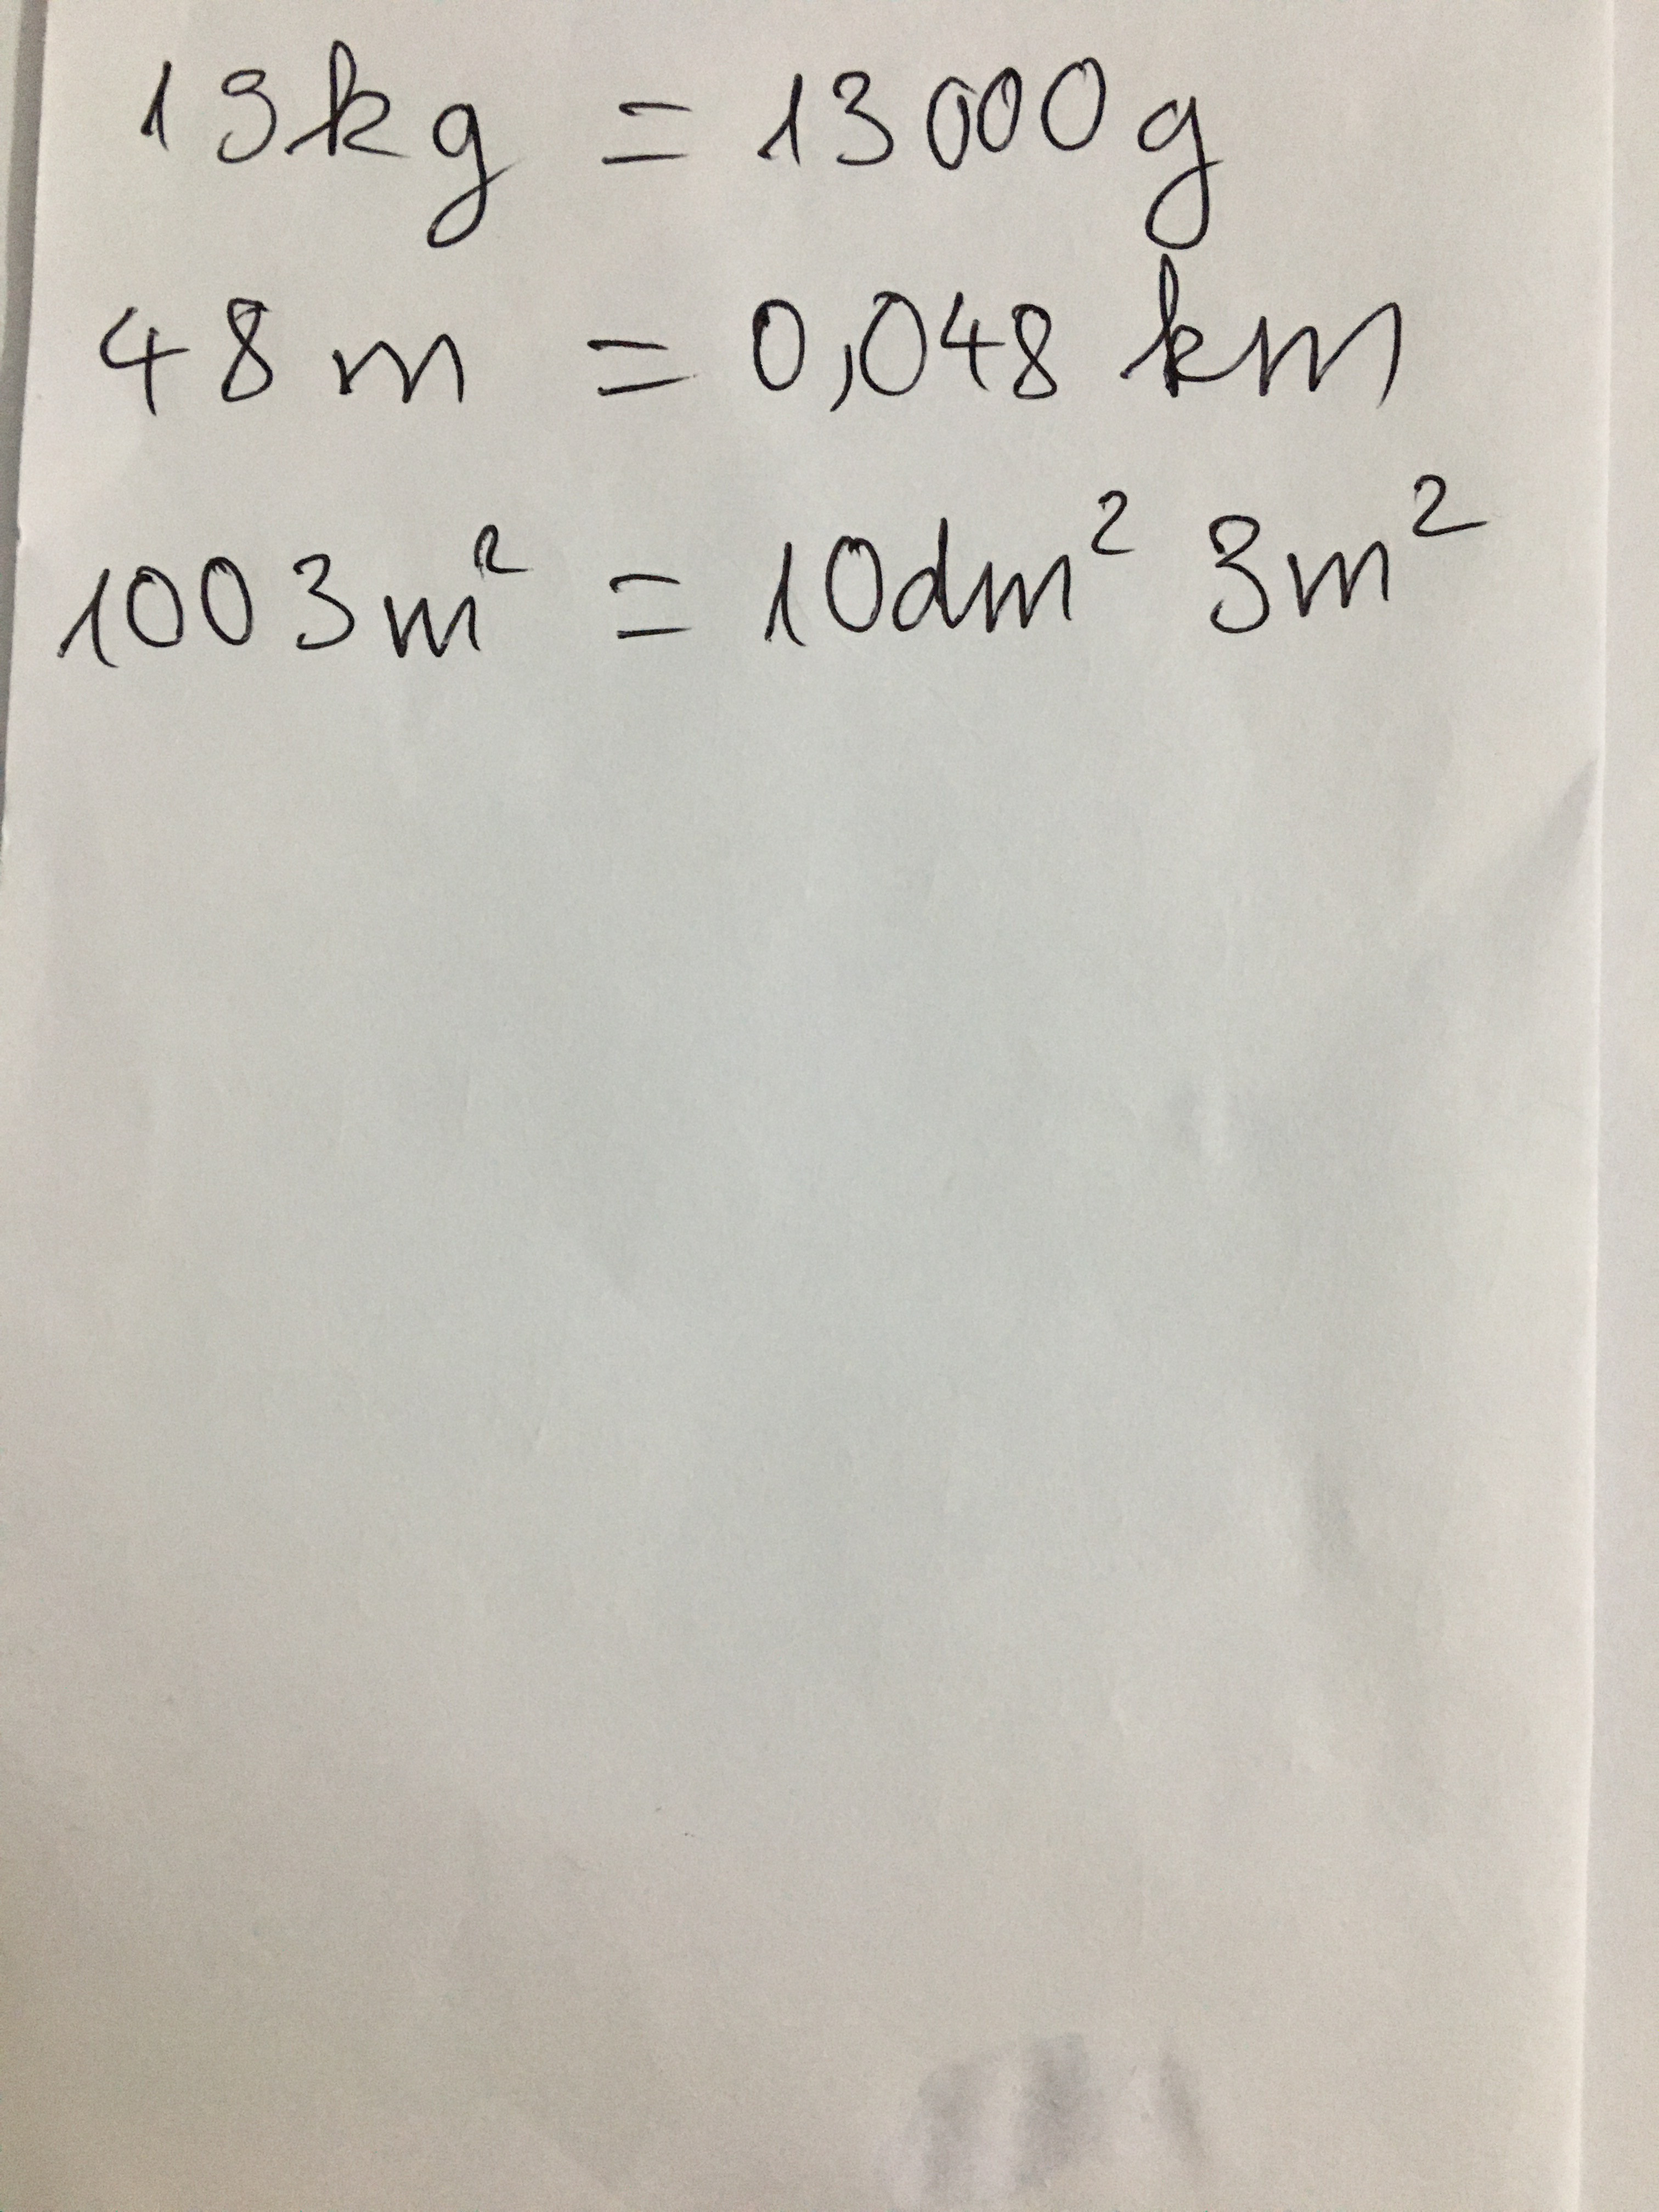 13kg = 13000g
48m = 0,048 km
1003m² = 10dm² 3m²